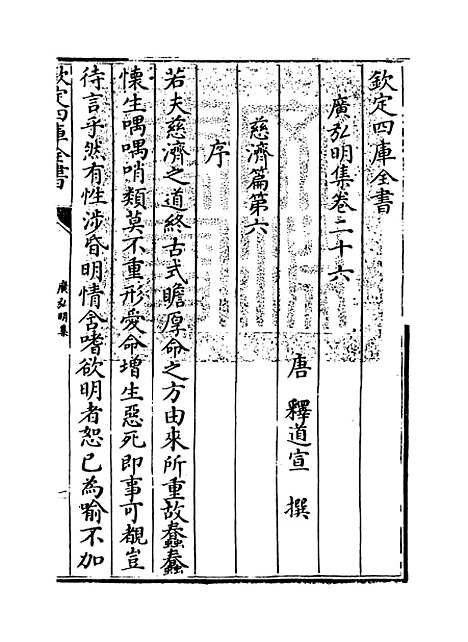 欽定四庫全書
廣弘明集卷二十六
唐 釋道宣 撰
慈濟篇第六
序
若夫慈濟之道終古式瞻厚命之方由來所重故蠢蠢
懷生喁喁哨類莫不重形愛命增生惡死即事可覩豈
待言乎然有性渉昏明情含嗜欲明者恕已為喻不加
欽定四庫全書
廣弘明集
一